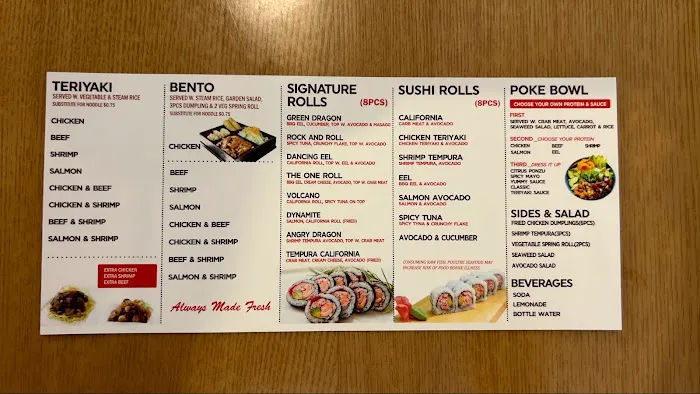 TERIYAKI
SERVED W. VEGETABLE & STEAM RICE
SUBSTITUTE FOR NOODLE $0.75
CHICKEN
BEEF
SHRIMP
SALMON
CHICKEN & BEEF
CHICKEN & SHRIMP
BEEF & SHRIMP
SALMON & SHRIMP
EXTRA CHICKEN
EXTRA SHRIMP
EXTRA BEEF
BENTO
SERVED W. STEAM RICE, GARDEN SALAD,
3PCS DUMPLING & 2 VEG SPRING ROLL
SUBSTITUTE FOR NOODLE $0.75
CHICKEN
BEEF
SHRIMP
SALMON
CHICKEN & BEEF
CHICKEN & SHRIMP
BEEF & SHRIMP
SALMON & SHRIMP
Always Made Fresh
SIGNATURE
ROLLS (8PCS)
GREEN DRAGON
BBQ EEL, CUCUMBER, TOP W. AVOCADO & MASAGO
ROCK AND ROLL
SPICY TUNA, CRUNCHY FLAKE, TOP W. AVOCADO
DANCING EEL
CALIFORNIA ROLL, TOP W. EEL & AVOCADO
THE ONE ROLL
BBQ EEL, CREAM CHEESE, AVOCADO, TOP W. CRAB MEAT
VOLCANO
CALIFORNIA ROLL, SPICY TUNA ON TOP
DYNAMITE
SALMON, CALIFORNIA ROLL (FRIED)
ANGRY DRAGON
SHRIMP TEMPURA AVOCADO, TOP W. CRAB MEAT
TEMPURA CALIFORNIA
CRAB MEAT, CREAM CHEESE, AVOCADO (FRIED)
SUSHI ROLLS
(8PCS)
CALIFORNIA
CARB MEAT & AVOCADO
CHICKEN TERIYAKI
CHICKEN TERIYAKI & AVOCADO
SHRIMP TEMPURA
SHRIMP TEMPURA, AVOCADO
EEL
BBQ EEL & AVOCADO
SALMON AVOCADO
SALMON & AVOCADO
SPICY TUNA
SPICY TUNA & CRUNCHY FLAKE
AVOCADO & CUCUMBER
CONSUMING RAW FISH, POULTRY, SEAFOOD MAY
INCREASE RISK OF FOOD BORNE ILLNESS.
POKE BOWL
CHOOSE YOUR OWN PROTEIN & SAUCE
FIRST
SERVED W. CRAB MEAT, AVOCADO,
SEAWEED SALAD, LETTUCE, CARROT & RICE
SECOND _CHOOSE YOUR PROTEIN
CHICKEN BEEF SHRIMP
SALMON EEL
THIRD _DRESS IT UP
CITRUS PONZU
SPICY MAYO
YUMMY SAUCE
CLASSIC
TERIYAKI SAUCE
SIDES & SALAD
FRIED CHICKEN DUMPLINGS(6PCS)
SHRIMP TEMPURA(3PCS)
VEGETABLE SPRING ROLL(2PCS)
SEAWEED SALAD
AVOCADO SALAD
BEVERAGES
SODA
LEMONADE
BOTTLE WATER